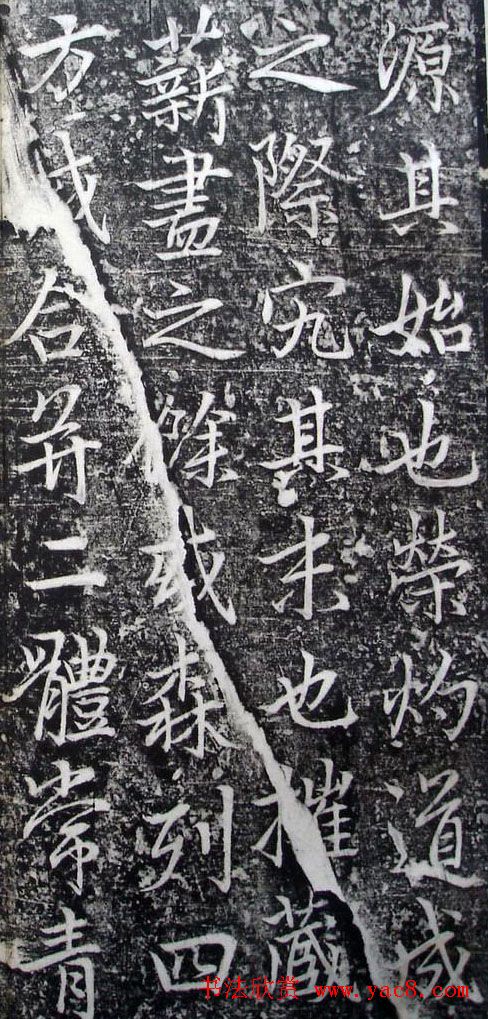 源其始也榮灼道成
之際究其末也摧藏
薪盡之餘或森列四
方或合并二體常青
书法欣赏 www.yac8.com